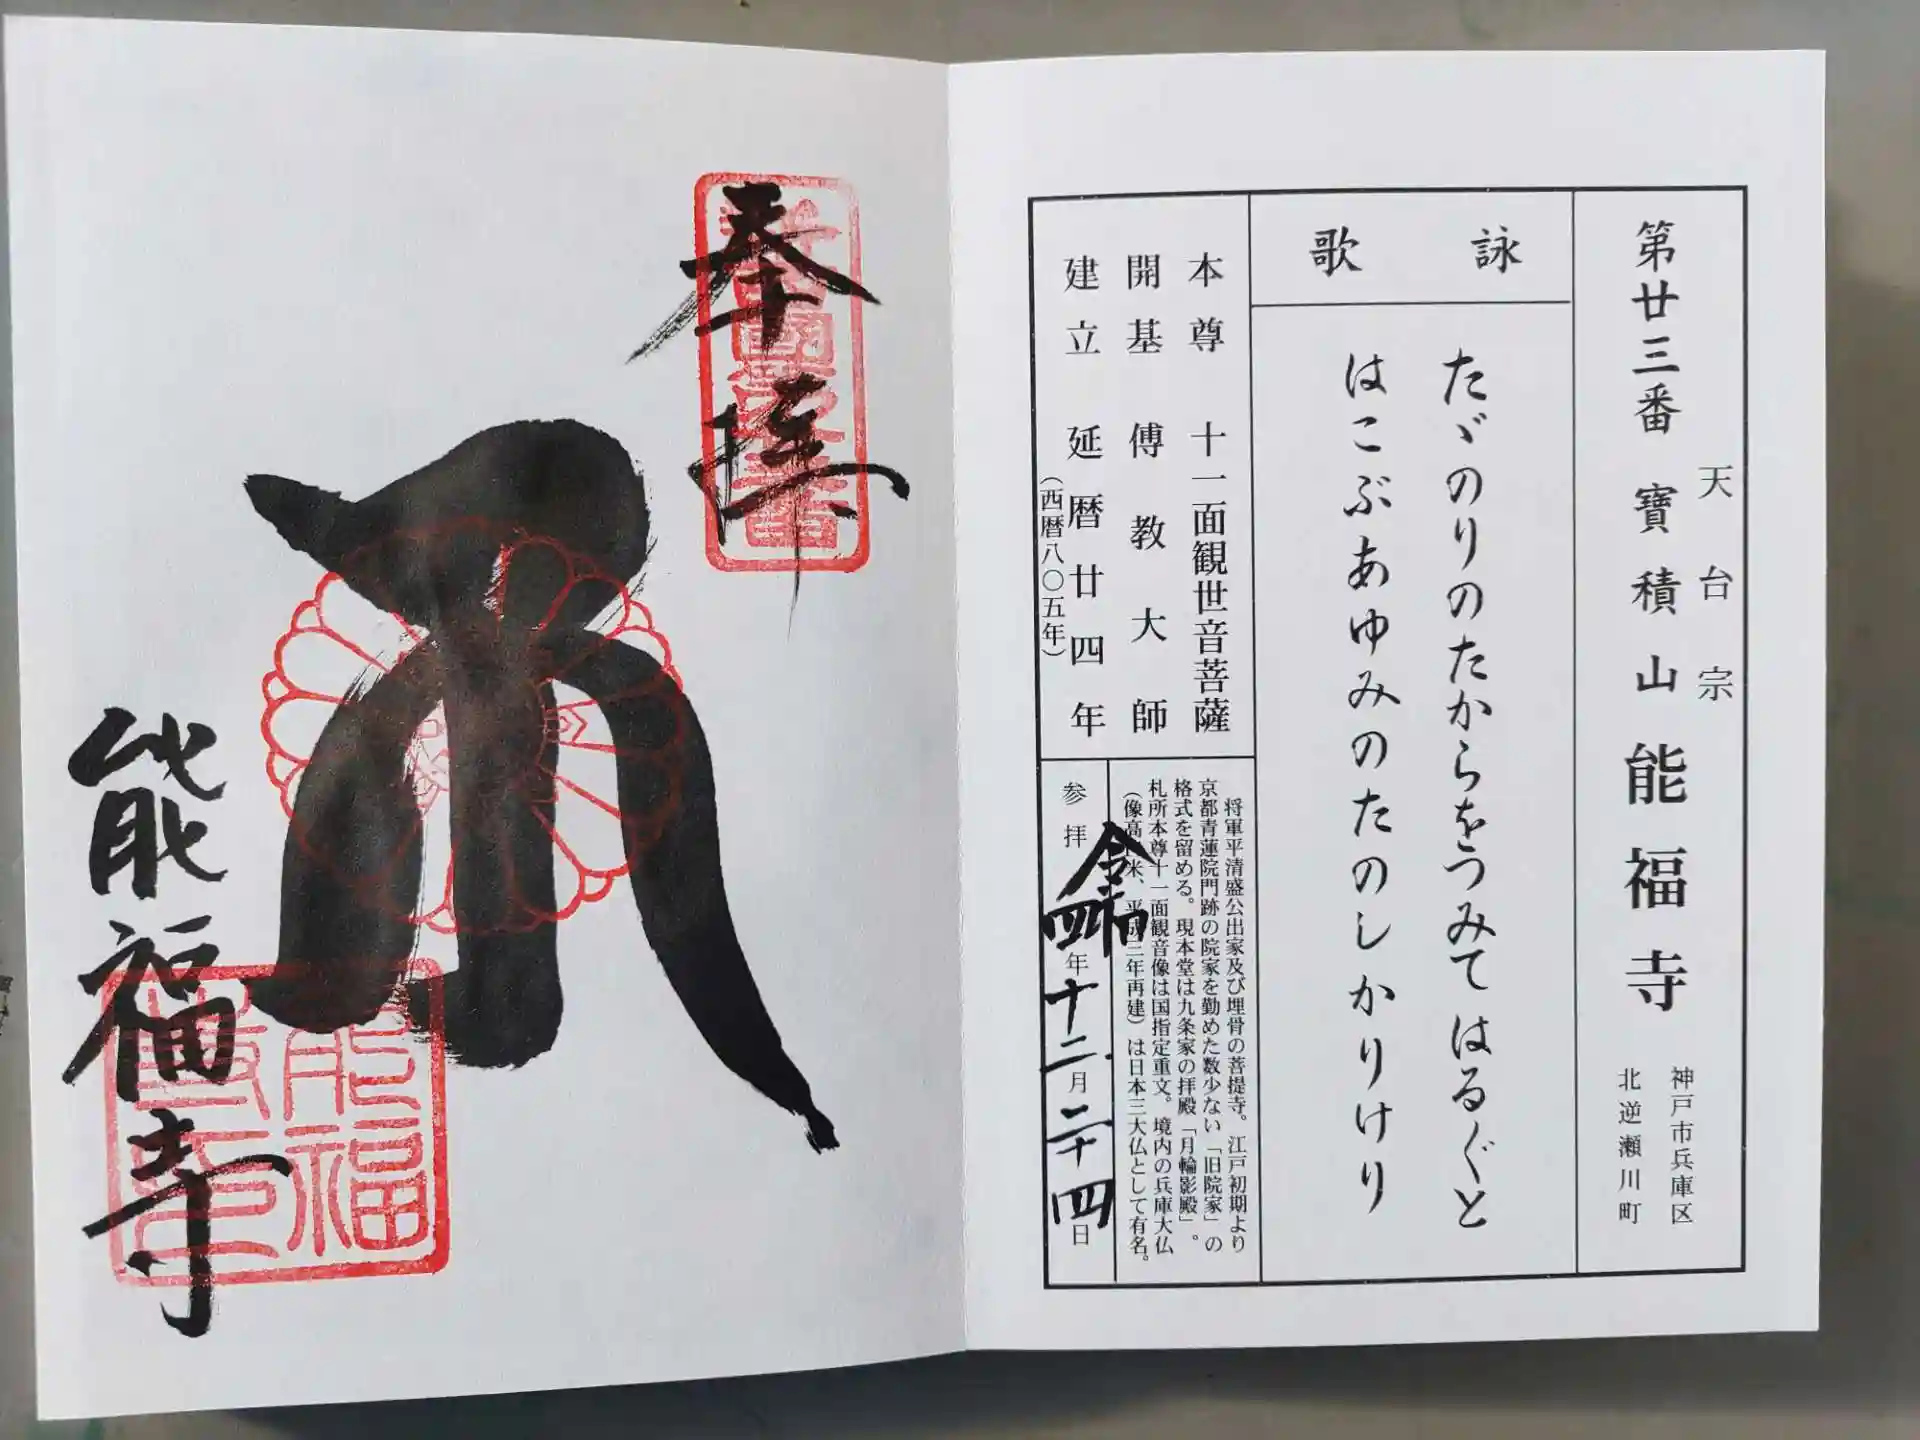 天台宗
第廿三番 寶積山 能福寺
神戸市兵庫区
北逆瀬川町
詠歌
たゞのりのたからをつみてはるぐと
はこぶあゆみのたのしかりけり
本尊 十一面観世音菩薩
開基 傳教大師
建立 延暦廿四年
(西暦八〇五年)
将軍平清盛公出家及び埋骨の菩提寺。江戸初期より
京都青蓮院門跡の院家を勤めた数少ない「旧院家」の
格式を留める。現本堂は九条家の拝殿「月輪影殿」。
札所本尊十一面観音像は国指定重文。境内の兵庫大仏
(像高 米、平成三年再建)は日本三大仏として有名。
参拝 令和四年十二月二十四日
奉拝
能福寺